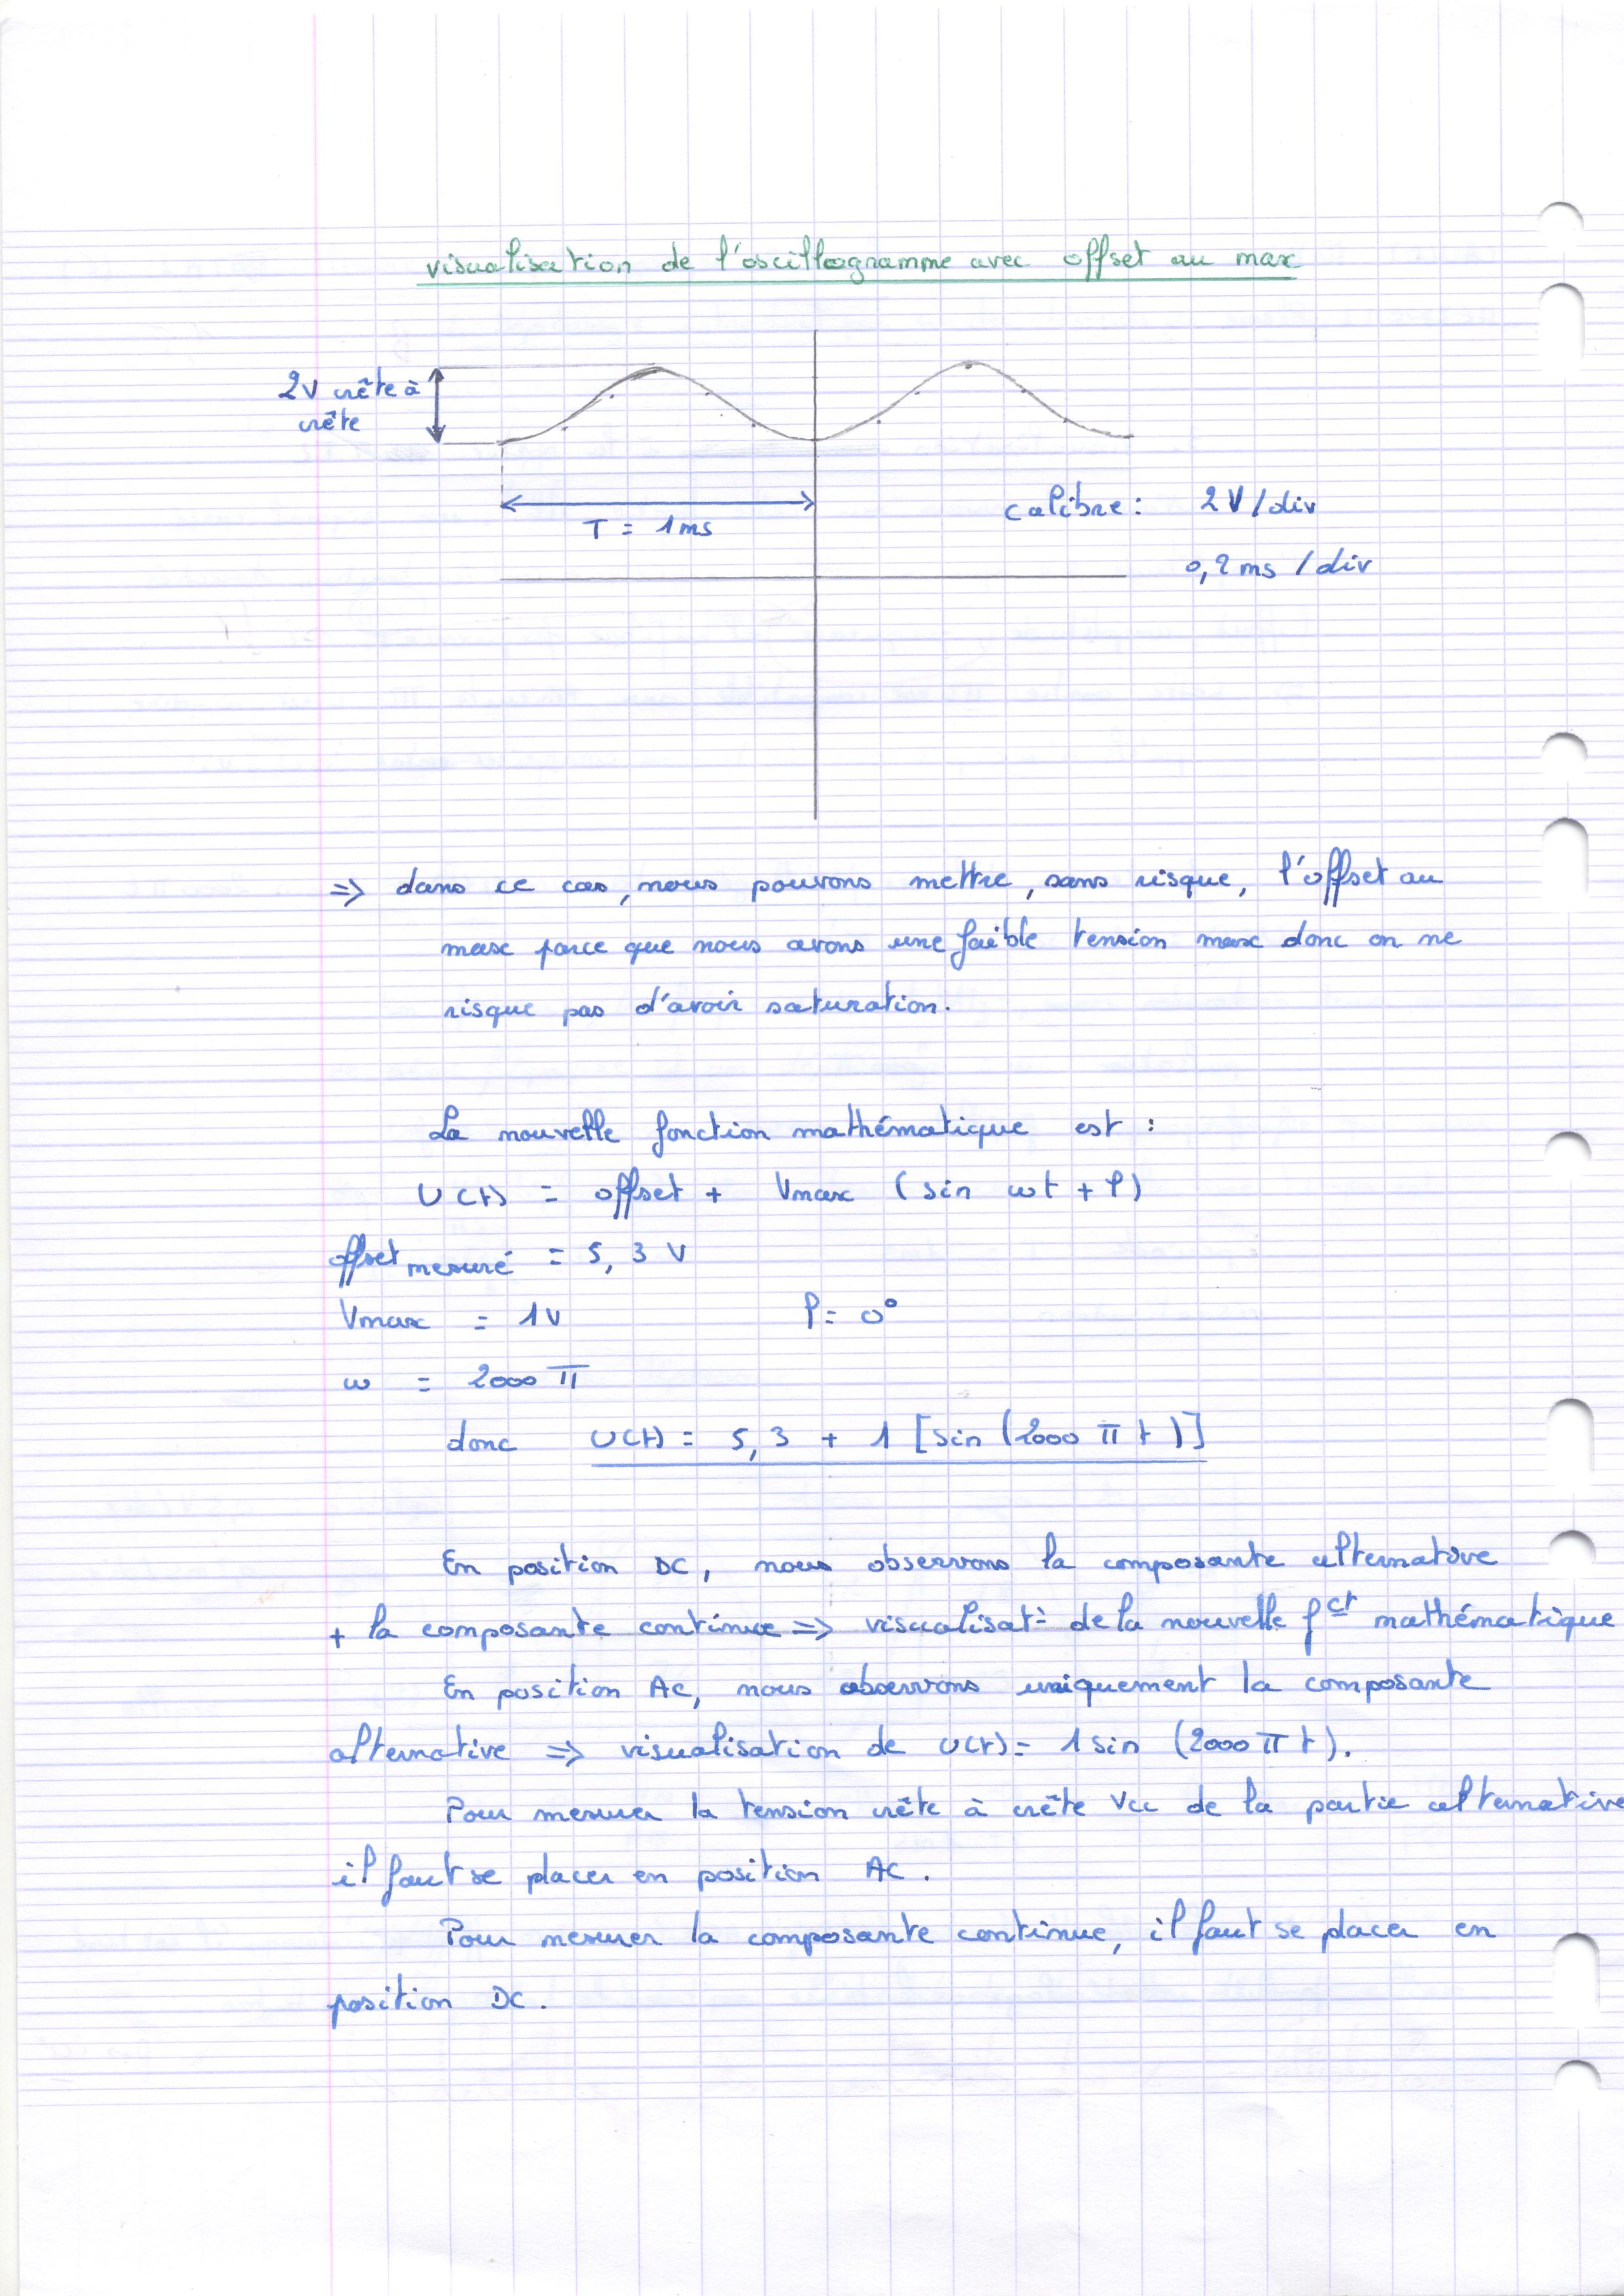 visualisation de l'oscillogramme avec offset au max
2V crête à
crête
T = 1ms
calibre : 2 V/div
0,2 ms /div
=> dans ce cas, nous pouvons mettre, sans risque, l'offset au
max parce que nous avons une faible tension max donc on ne
risque pas d'avoir saturation.
La nouvelle fonction mathématique est :
U(t) = offset + Vmax (sin ωt + φ)
offset mesuré = 5,3 V
Vmax = 1V φ = 0°
ω = 2000 π
donc U(t) = 5,3 + 1 [sin (2000 π t)]
En position DC, nous observons la composante alternative
+ la composante continue => visualisat° de la nouvelle fct mathématique
En position AC, nous observons uniquement la composante
alternative => visualisation de U(t) = 1 sin (2000 π t).
Pour mesurer la tension crête à crête Vcc de la partie alternative
il faut se placer en position AC.
Pour mesurer la composante continue, il faut se placer en
position DC.